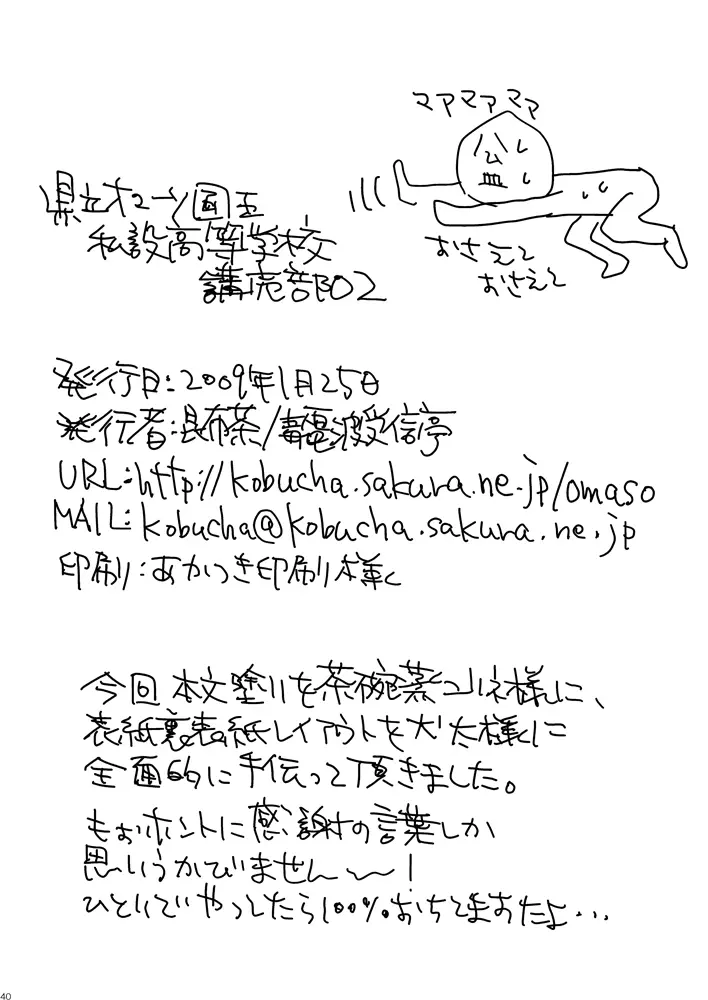 マアマアママ
公
皿
おさえて
おさえて
県立オマーン国王
私設高等学校
購売部02
発行日:2009年1月25日
発行者:昆布茶/毒電波受信亭
URL:http://kobucha.sakura.ne.jp/omaso
MAIL:kobucha@kobucha.sakura.ne.jp
印刷:あかつき印刷様
今回本文塗りを茶碗蒸コルネ様に、
表紙裏表紙レイアウトを犬太様に
全面的に手伝って頂きました。
もぉホントに感謝の言葉しか
思いうかびません〜!
ひとりでやってたら100%おちてますたよ…
40